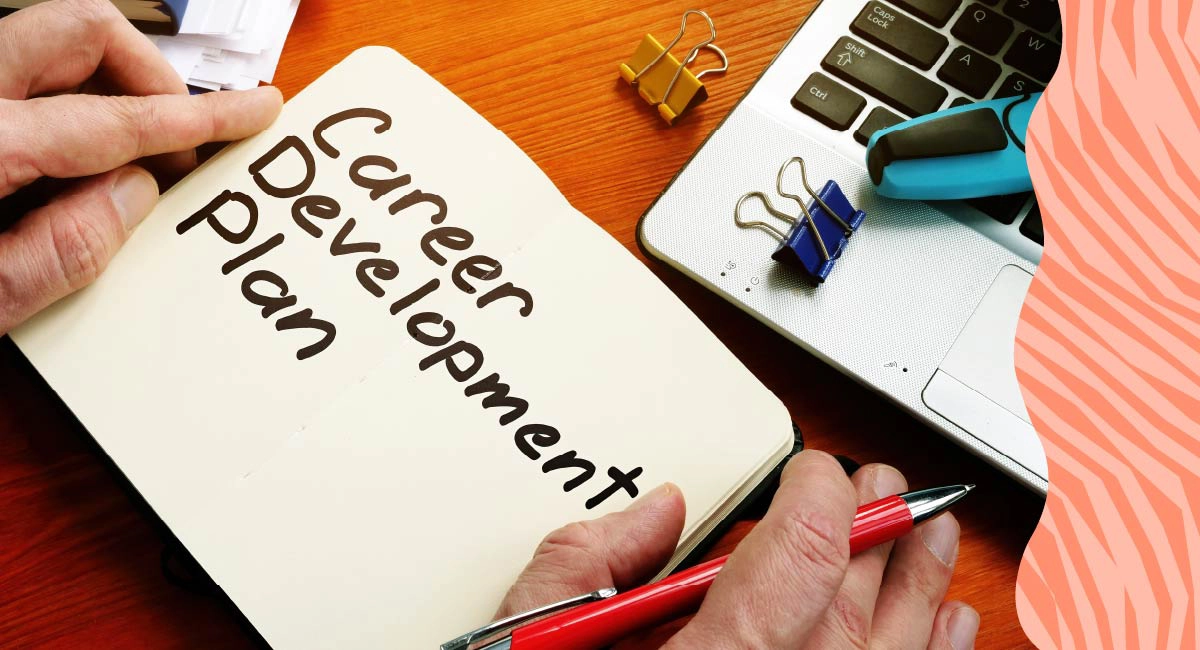 Career
Development
Plan
Caps Lock
Shift
Ctrl
Q
W
2
A
S